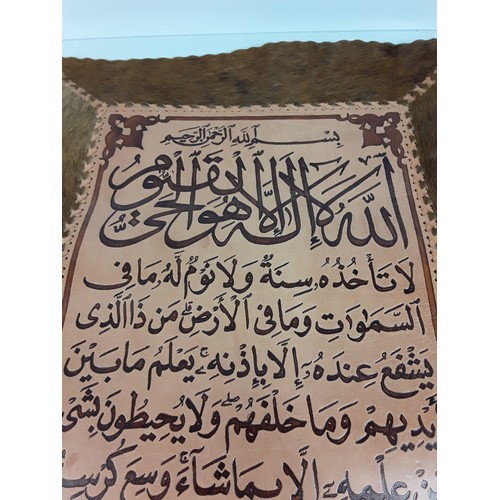 بِسْمِ اللهِ الرَّحْمٰنِ الرَّحِيمِ
اَللهُ لَا إِلٰهَ إِلَّا هُوَ الْحَيُّ الْقَيُّومُ
لَا تَأْخُذُهُ سِنَةٌ وَلَا نَوْمٌ لَهُ مَا فِي
السَّمٰوَاتِ وَمَا فِي الْأَرْضِ مَنْ ذَا الَّذِي
يَشْفَعُ عِنْدَهُ إِلَّا بِإِذْنِهِ يَعْلَمُ مَا بَيْنَ
أَيْدِيهِمْ وَمَا خَلْفَهُمْ وَلَا يُحِيطُونَ بِشَيْ
مِنْ عِلْمِهِ إِلَّا بِمَا شَاءَ وَسِعَ كُرْسِ